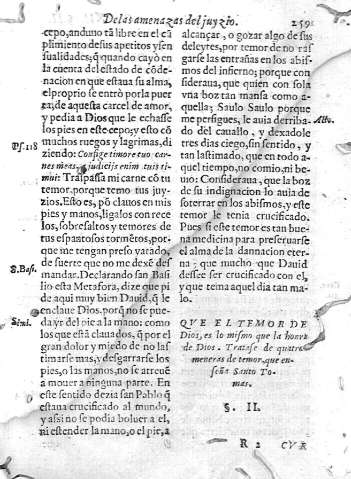 De las amenazas del juyzio. 259
cepo, anduuo tã libre en el cũ
plimiento de sus apetitos y sen
sualidades; q̃ quando cayò en
la cuenta del estado de cõde-
nacion en que estaua su alma,
el proprio se entrò por la puer
ta, de aquesta carcel de amor,
y pedia a Dios que le echasse
los pies en este cepo; y esto cõ
muchos ruegos y lagrimas, di
ziendo: Confige timore tuo car-
nes meas, à iudicijs enim tuis ti-
mui: Traspassa mi carne cõ tu
temor, porque temo tus juy-
zios. Esto es, põ clauos en mis
pies y manos, ligalos con rece
los, sobresaltos y temores de
tus espantosos tormẽtos, por-
que me tengan preso y atado,
de suerte que no me dexẽ des
mandar. Declarando san Basi
lio esta Metafora, dize que pi
de aqui muy bien Dauid, q̃ le
enclaue Dios, porq̃ no se pue-
da yr del pie a la mano: como
los que està clauados, q̃ por el
gran dolor y miedo de no las
timarse mas, y desgarrarse los
pies, o las manos, no se atreuẽ
a mouer a ninguna parte. En
este sentido dezia san Pablo q̃
estaua crucificado al mundo,
y assi no se podia boluer a el,
ni estender la mano, o el pie, a
Ps. 118
S. Basi.
Simi.
alcançar, o gozar algo de sus
deleytes, por temor de no ras
garse las entrañas en los abis-
mos del infierno; porque con
sideraua, que quien con sola
vna boz tan mansa como a-
quella; Saulo Saulo porque
me persigues, le auia derriba-
do del cauallo, y dexadole
tres dias ciego, sin sentido, y
tan lastimado, que en todo a-
quel tiempo, no comio, ni be-
uio: Consideraua, que la boz
de su indignacion lo auia de
soterrar en los abismos, y este
temor le tenia crucificado.
Pues si este temor es tan bue-
na medicina para preseruarse
el alma de la dannacion eter-
na que mucho que Dauid
dessee ser crucificado con el,
y que tema aquel dia tan ma-
lo.
Act9.
QVE EL TEMOR DE
Dios, es lo mismo que la honra
de Dios. Tratase de quatro
meneras de temor, que en-
seña Santo To-
mas.
§. II.
R 2 CVR